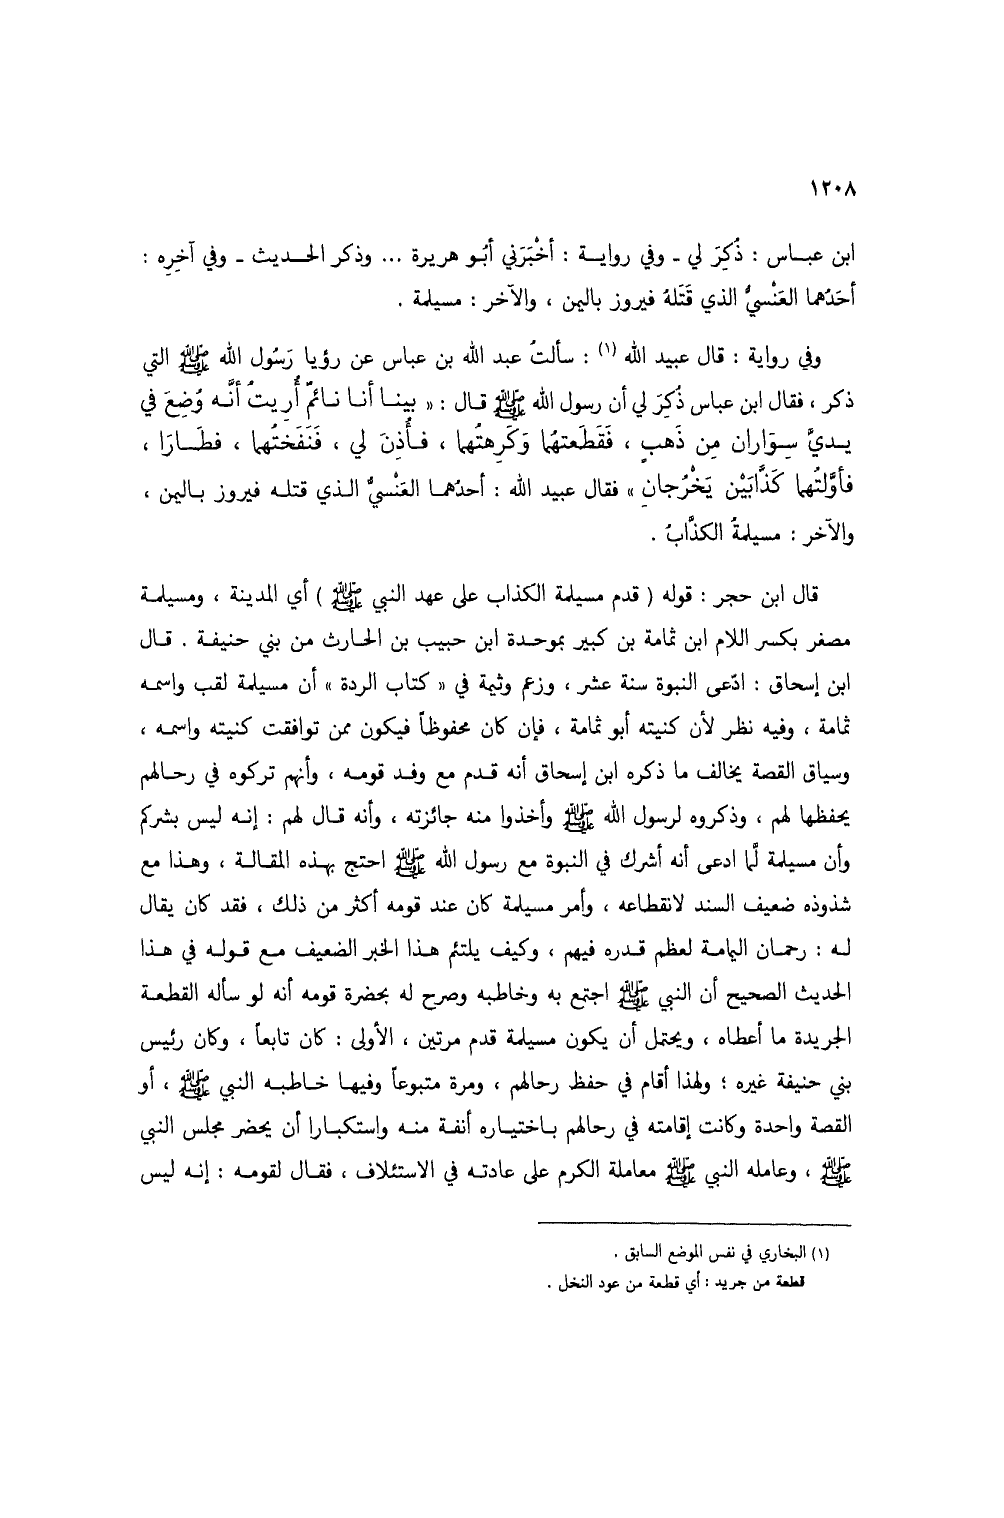 ١٢٠٨
ابن عبـاس : ذُكِرَ لي ـ وفي روايـة : أخْبَرَني أبُو هريرة ... وذكر الحـديث ـ وفي آخِرِه :
أحَدُهما العَنْسيُّ الذي قَتَلهُ فيروز باليمن ، والآخر : مسيلمة .
وفي رواية : قال عبيد الله (١) : سألتُ عبد الله بن عباس عن رؤيا رَسُول الله ﷺ التي
ذكر ، فقال ابن عباس ذُكِرَ لي أن رسول الله ﷺ قـال : « بينـا أنـا نـائمٌ أُريتُ أنَّـه وُضِعَ في
يـديَّ سِـوَاران مِن ذَهبٍ ، فَقَطَعتهُما وَكَرِهتُها ، فـأُذِنَ لي ، فَنَفَختُها ، فطَـارَا ،
فأوَّلتُها كَذَّابَيْن يَخْرُجانِ » فقال عبيد الله : أحدُهمـا العَنْسيُّ الـذي قتلـه فيروز بـاليمن ،
والآخر : مسيلمةُ الكذَّابُ .
قال ابن حجر : قوله ( قدم مسيلمة الكذاب على عهد النبي ﷺ ) أي المدينة ، ومسيلمـة
مصغر بكسر اللام ابن ثمامة بن كبير بموحـدة ابن حبيب بن الحـارث من بني حنيفـة . قـال
ابن إسحاق : ادّعى النبوة سنة عشر ، وزعم وثيمة في « كتاب الردة » أن مسيلمة لقب واسمـه
ثمامة ، وفيه نظر لأن كنيته أبو ثمامة ، فإن كان محفوظاً فيكون ممن توافقت كنيته واسمـه ،
وسياق القصة يخالف ما ذكره ابن إسحاق أنه قـدم مع وفـد قومـه ، وأنهم تركوه في رحـالهم
يحفظها لهم ، وذكروه لرسول الله ﷺ وأخذوا منه جائزته ، وأنه قـال لهم : إنـه ليس بشركم
وأن مسيلمة لَمَّا ادعى أنه أشرك في النبوة مع رسول الله ﷺ احتج بهـذه المقـالـة ، وهـذا مع
شذوذه ضعيف السند لانقطاعه ، وأمر مسيلمة كان عند قومه أكثر من ذلك ، فقد كان يقال
لـه : رحمـان اليمامـة لعظم قـدره فيهم ، وكيف يلتئم هـذا الخبر الضعيف مـع قولـه في هـذا
الحديث الصحيح أن النبي ﷺ اجتمع به وخاطبه وصرح له بحضرة قومه أنه لو سأله القطعـة
الجريدة ما أعطاه ، ويحتمل أن يكون مسيلمة قدم مرتين ، الأولى : كان تابعاً ، وكان رئيس
بني حنيفة غيره ؛ ولهذا أقام في حفظ رحالهم ، ومرة متبوعاً وفيهـا خـاطبـه النبي ﷺ ، أو
القصة واحدة وكانت إقامته في رحالهم بـاختيـاره أنفـة منـه واستكبـارا أن يحضر مجلس النبي
ﷺ ، وعامله النبي ﷺ معاملة الكرم على عادتـه في الاستئلاف ، فقـال لقومـه : إنـه ليس
(١) البخاري في نفس الموضع السابق .
قطعة من جريد : أي قطعة من عود النخل .